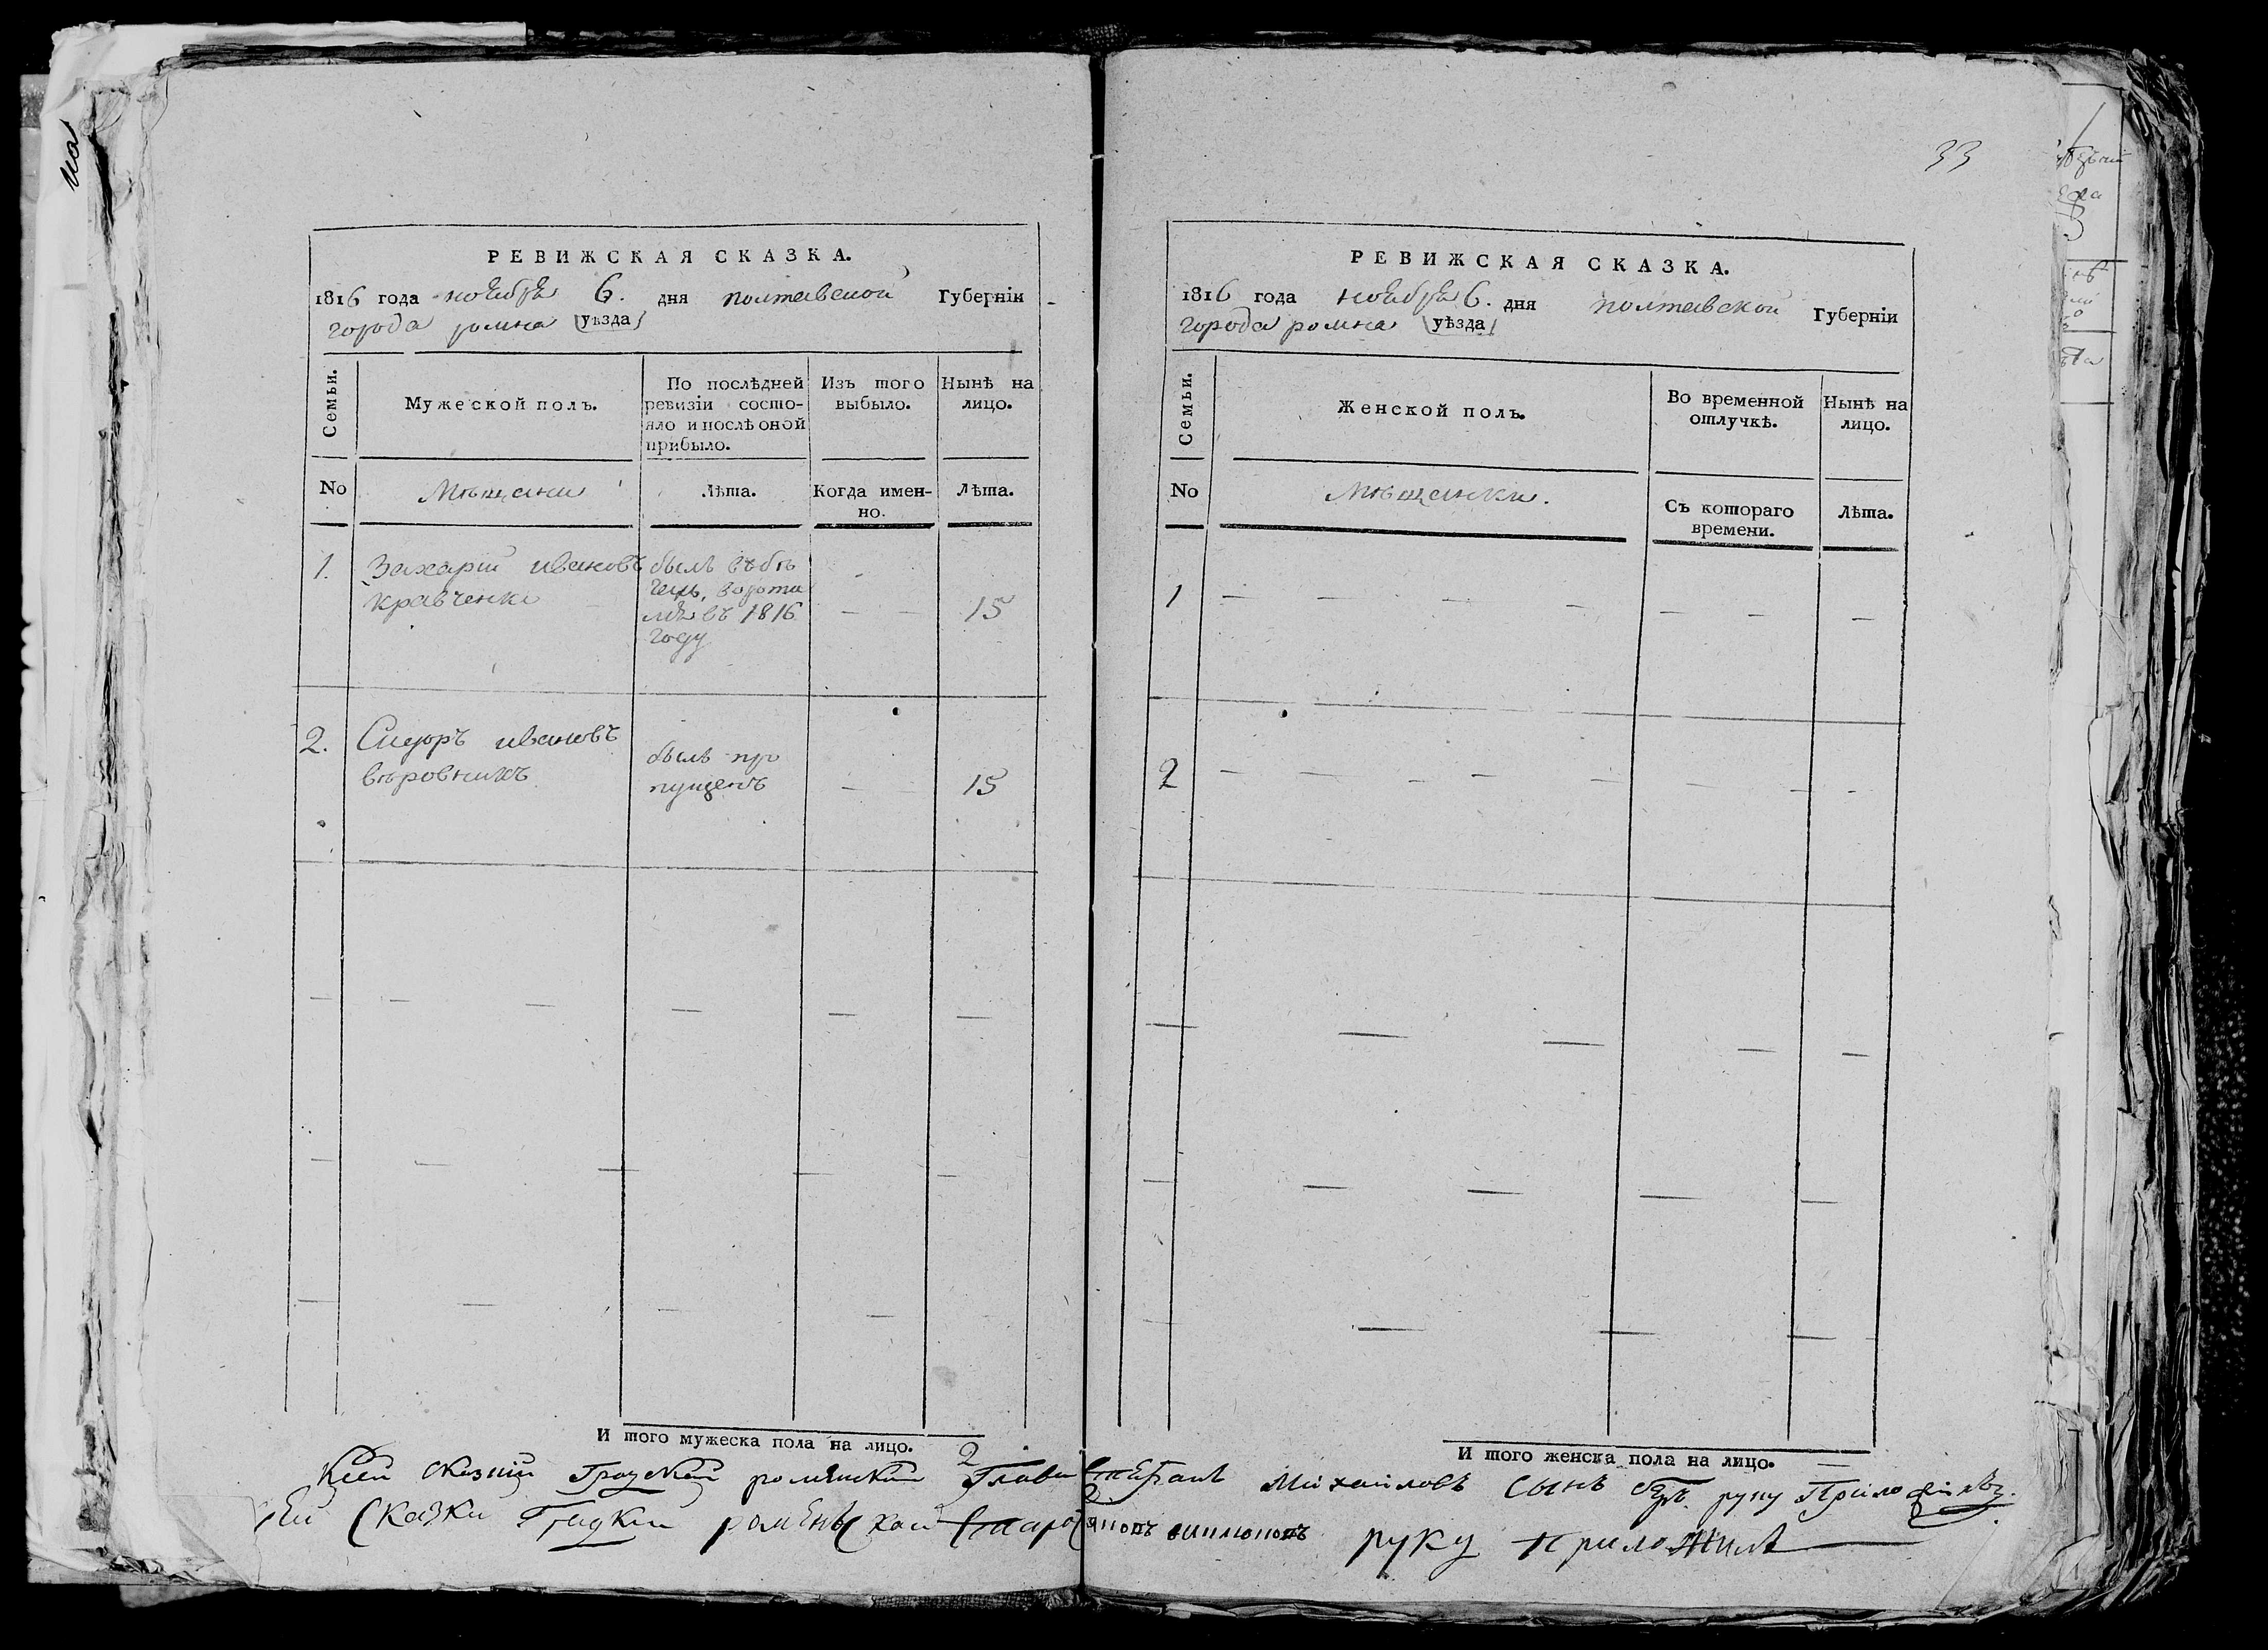 РЕВИЖСКАЯ СКАЗКА.
1816 года ноября 6. дня полтавской Губерніи
города ромна (уѣзда)
Семьи.
Мужеской полъ.
По послѣдней ревизіи состояло и послѣ оной прибыло.
Изъ того выбыло.
Нынѣ на лицо.
No
Мѣщани
Лѣта.
Когда именно.
Лѣта.
1. Захарій ивановъ былъ въ бѣ
кравченко гахъ, вороти
лся въ 1816 — — 15
году
2. Сидоръ ивановъ былъ про
вѣровникъ пущенъ — — 15
И того мужеска пола на лицо. 2
33
РЕВИЖСКАЯ СКАЗКА.
1816 года ноября 6. дня полтавской Губерніи
города ромна (уѣзда)
Семьи.
Женской полъ.
Во временной отлучкѣ.
Нынѣ на лицо.
No
Мѣщанки.
Съ котораго времени.
Лѣта.
1 — — — — — — —
2 — — — — — — — —
И того женска пола на лицо. —
Михайловъ сынъ руку
Сказки руку приложилъ
на